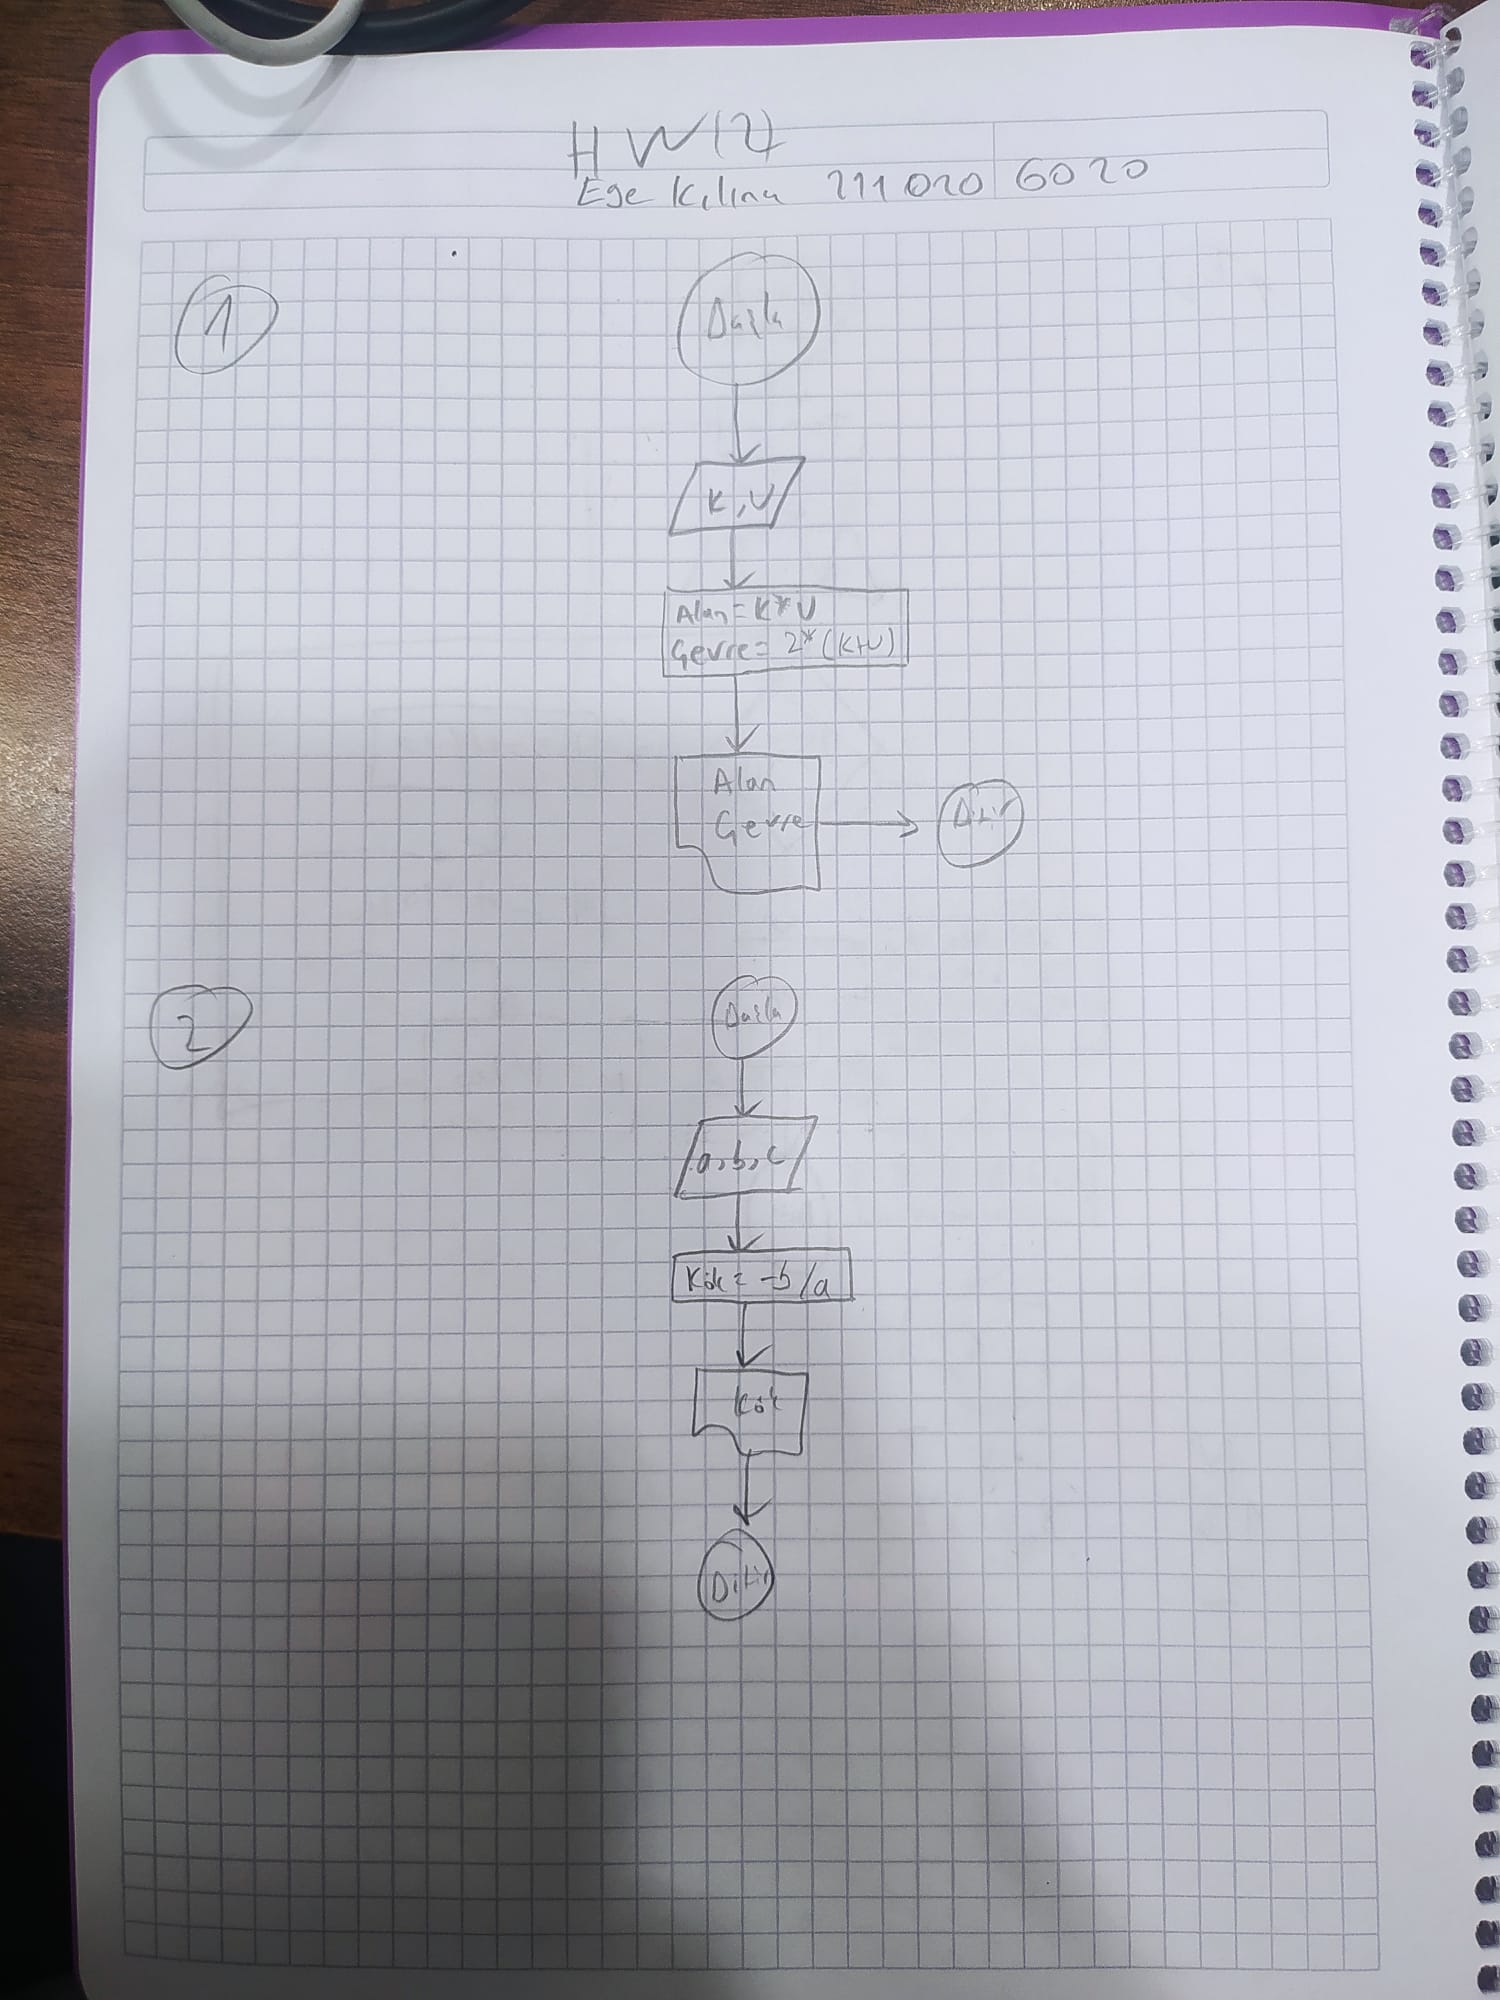 HW(2)
Ege Kılınç 211020 6020
1
Başla
K,U
Alan=K*U
Çevre= 2*(K+U)
Alan
Çevre
Bitir
2
Başla
a,b,c
Kök= -b/a
Kök
Bitir